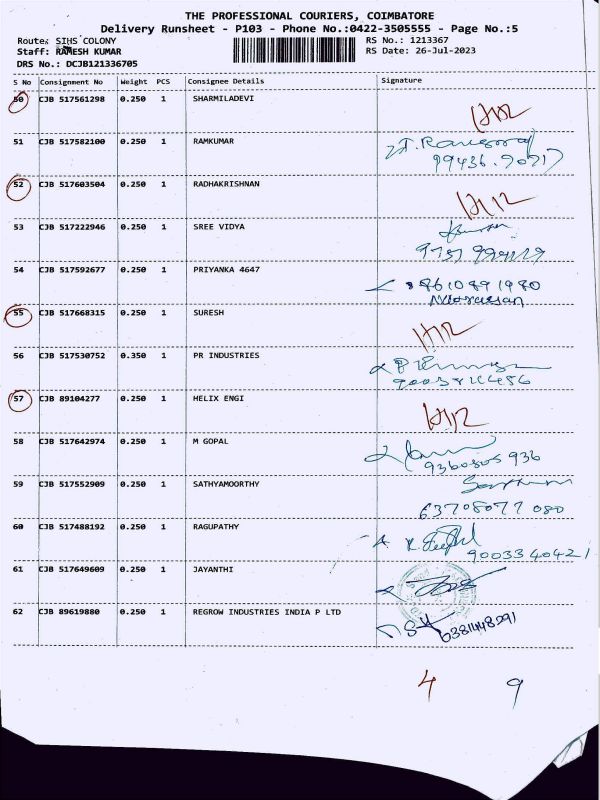 THE PROFESSIONAL COURIERS, COIMBATORE
Delivery Runsheet - P103 - Phone No.:0422-3505555 - Page No.:5
Route: SIHS COLONY
RS No.: 1213367
Staff: RAMESH KUMAR
RS Date: 26-Jul-2023
DRS No.: DCJB121336705
S No Consignment No Weight PCS Consignee Details Signature
50 CJB 517561298 0.250 1 SHARMILADEVI
51 CJB 517582100 0.250 1 RAMKUMAR
52 CJB 517603504 0.250 1 RADHAKRISHNAN
53 CJB 517222946 0.250 1 SREE VIDYA
54 CJB 517592677 0.250 1 PRIYANKA 4647
8610891980
55 CJB 517668315 0.250 1 SURESH
56 CJB 517530752 0.350 1 PR INDUSTRIES
57 CJB 89104277 0.250 1 HELIX ENGI
58 CJB 517642974 0.250 1 M GOPAL
59 CJB 517552909 0.250 1 SATHYAMOORTHY
63708077080
60 CJB 517488192 0.250 1 RAGUPATHY
9003340421
61 CJB 517649609 0.250 1 JAYANTHI
62 CJB 89619880 0.250 1 REGROW INDUSTRIES INDIA P LTD
4 9